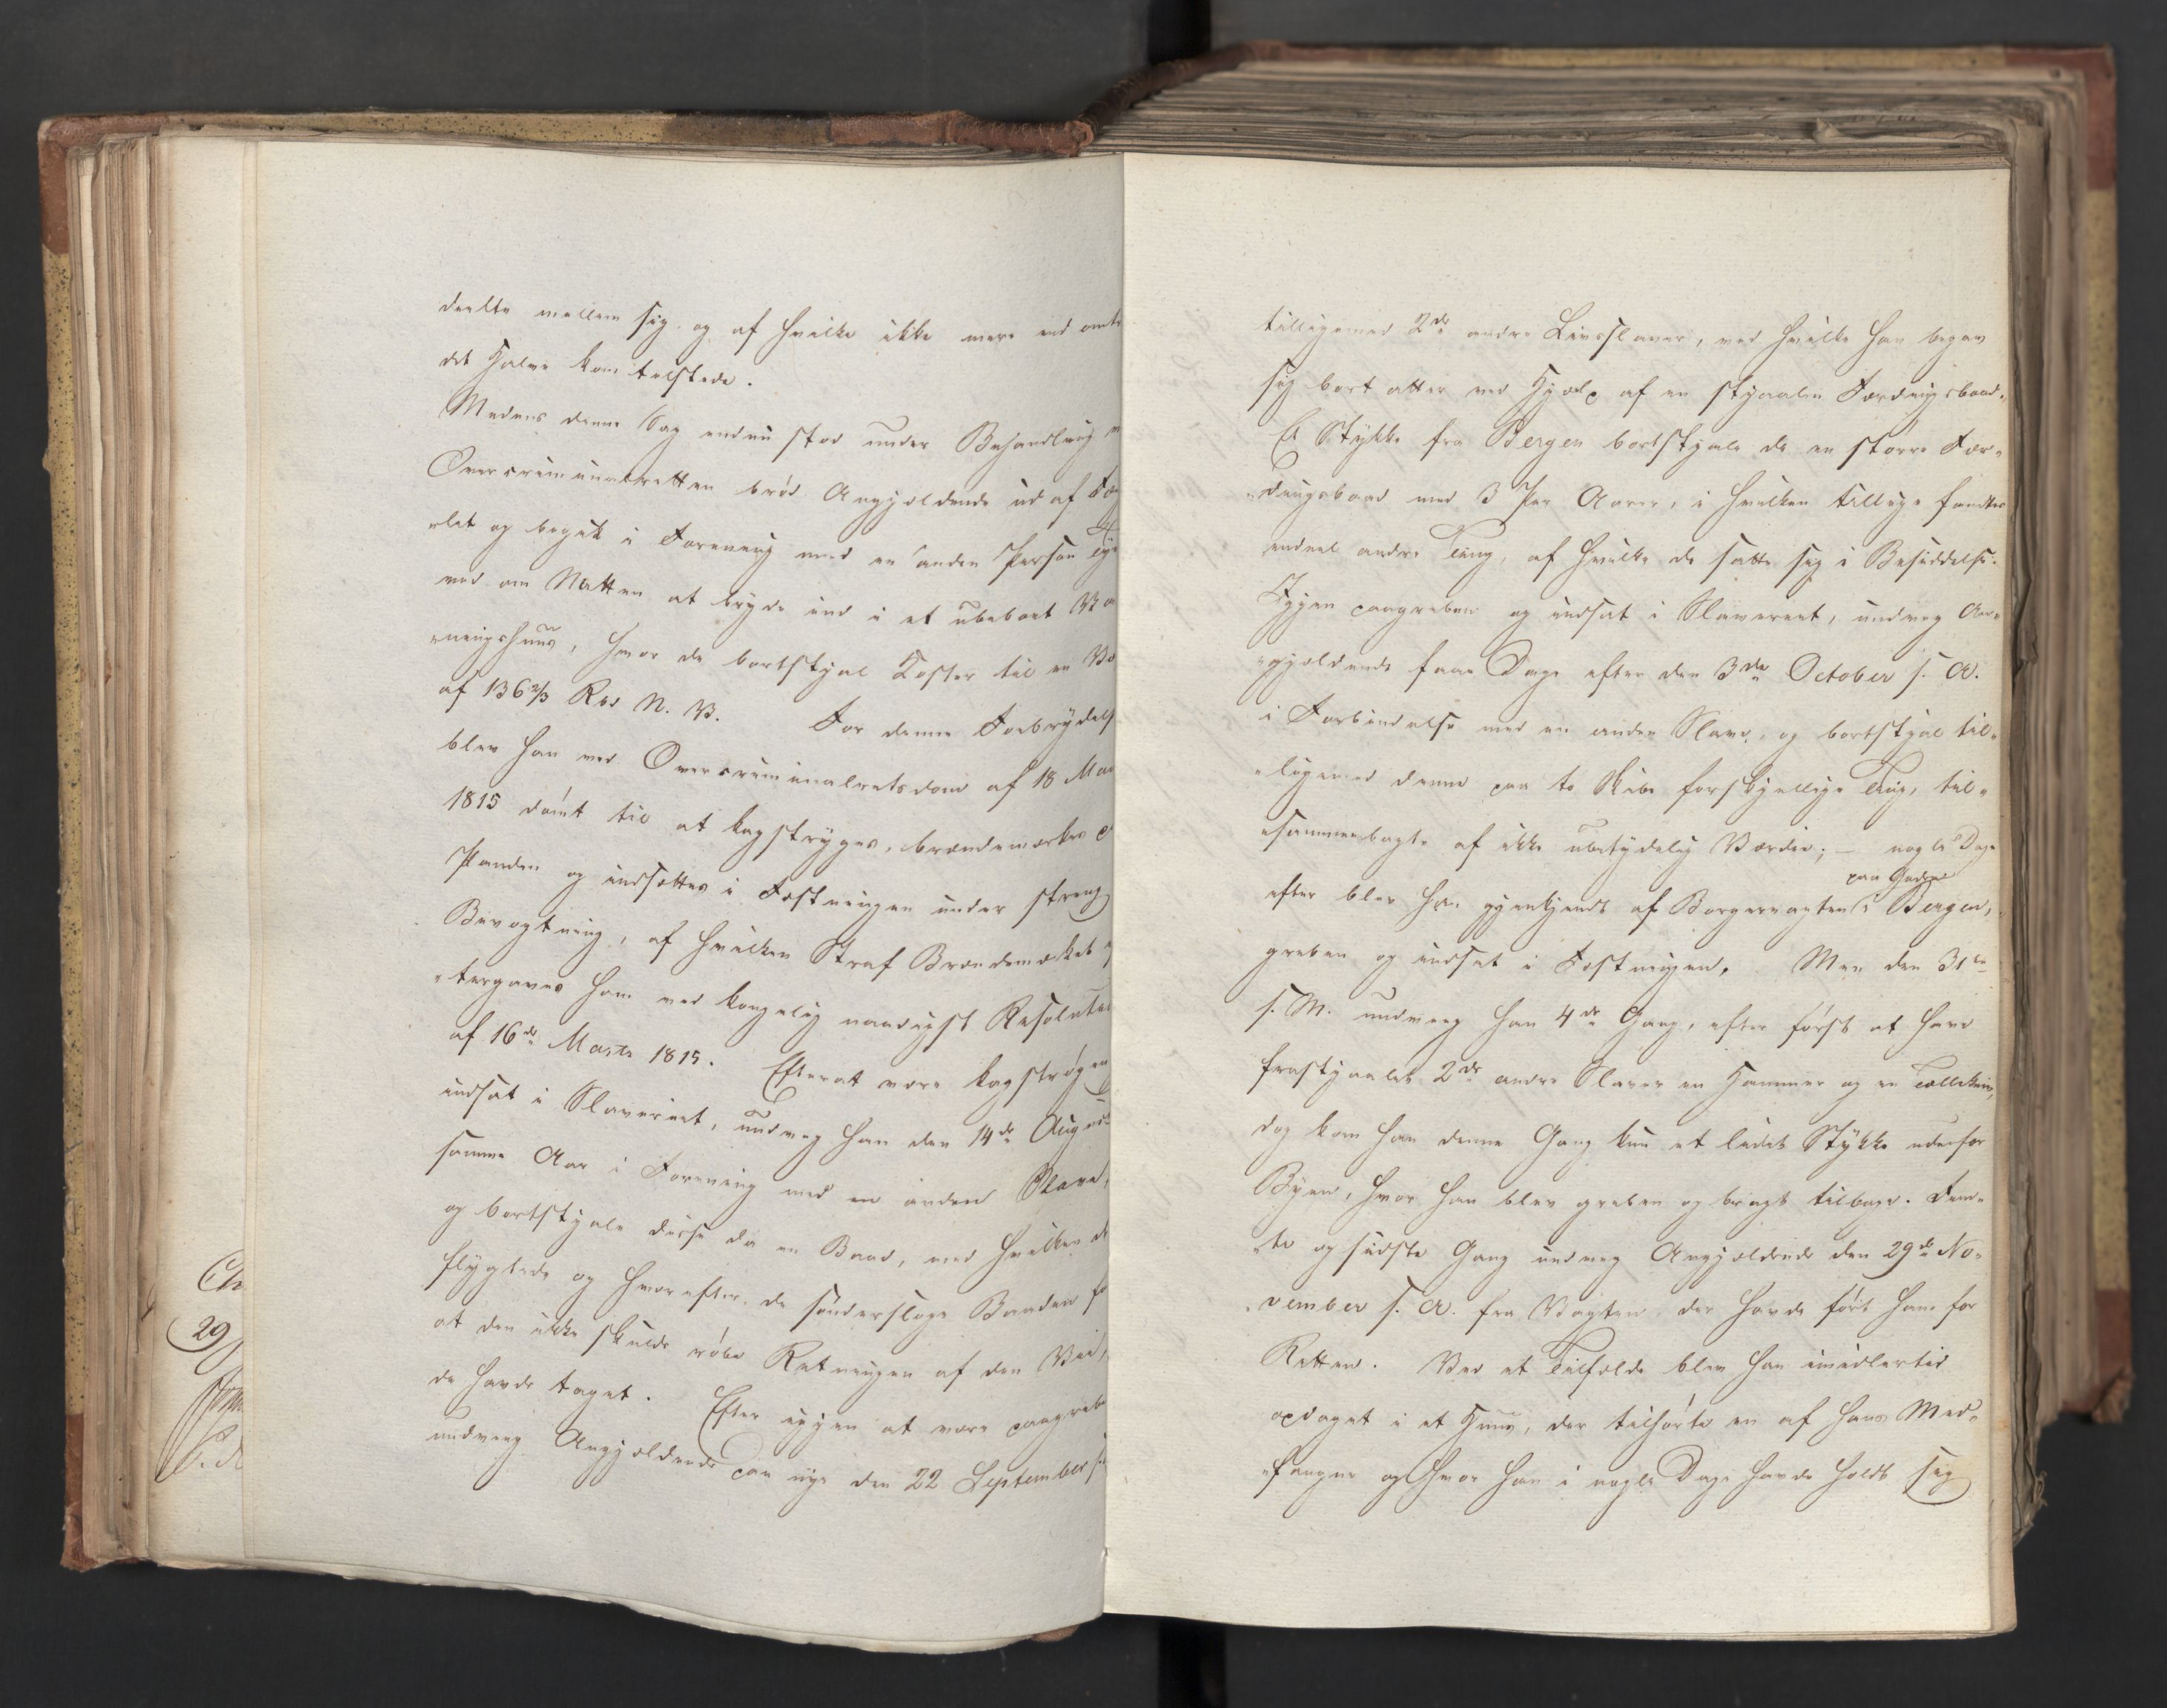 deelte mellem sig og af hvilke ikke mere end omtr
det Halve kom tilstede.
Medens denne Sag endnu stod under Behandling
Overcriminalretten brød Angjældende ud af Fæng
"slet og begik i Forening med en anden Person Tyv
ved om Natten at bryde ind i et ubeboet Vaa
"ningshuus, hvor de bortstjal Koster til en Væ
af 136 2/3 Rbd N. V. For denne Forbrydels
blev han ved Overcriminalretsdom af 18 Mar
1815 dømt til at kagstryges, brændemærkes
Panden og indsættes i Fæstningen under streng
Bevogtning, af hvilken Straf Brændemærket
"tergaves ham ved kongelig naadigst Resolution
af 16de Marts 1815. Efterat være kagstrøgen
indsat i Slaveriet, undveg han den 14de August
samme Aar i Forening med en anden Slave,
og bortstjale disse da en Baad, med hvilken de
flygtede og hvorefter de søndersloge Baaden fo
at den ikke skulde røbe Retningen af den Vei,
de havde taget. Efter igjen at være paagrebe
undveg Angjældende paa nye den 22 September
Ch
29
tilligemed 2de andre Livsslaver, med hvilke han begav
sig bort atter ved Hjælp af en stjaalen Færingsbaad.
Et Stykke fra Bergen bortstjale de en større Fær-
"dingsbaad med 3 Par Aarer, i hvilken tillige fandtes
endeel andre Ting, af hvilke de satte sig i Besiddelse.
Igjen paagreben og indsat i Slaveriet, undveg An-
"gjældende faae Dage efter den 3die October s. A.
i Forbindelse med en anden Slave, og bortstjal til-
"ligemed denne paa to Skibe forskjellige Ting, til-
"sammenlagte af ikke ubetydelig Værdie; – nogle Dage
paa Gaden
efter blev han gjenkjendt af Borgervagten i Bergen,
greben og indsat i Fæstningen. Men den 31te
s. M. undveg han 4de Gang, efter først at have
frastjaalet 2de andre Slaver en Hammer og en Tællekniv,
dog kom han denne Gang kun et lidet Stykke udenfor
Byen, hvor han blev greben og bragt tilbage. Fem-
"te og sidste Gang undveg Angjældende den 29de No-
"vember s. A. fra Vagten, der havde ført ham for
Retten. Ved et Tilfælde blev han imidlertid
opdaget i et Huus, der tilhørte en af hans Med-
"fanger og hvor han i nogle Dage havde holdt sig